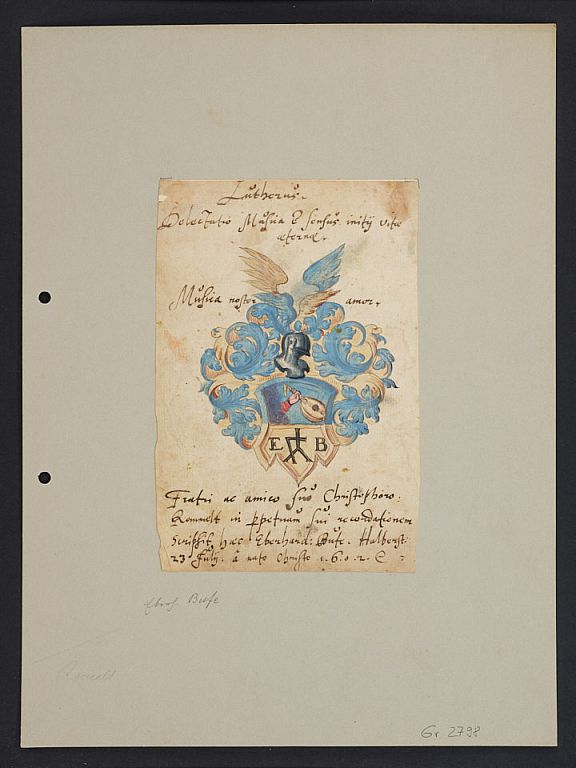 Lutherus.
Delectatio Musica & sensus initij vitæ
æternæ.
Musica noster amor.
E B
Fratri ac amico suo Christophoro:
Rommelt in ppetuam sui recordationem
scripsit hæc Eberhard: Bufe. Halberst:
23 July. à nato Christo 1.6.0.2.
Bufe
Gr 2798